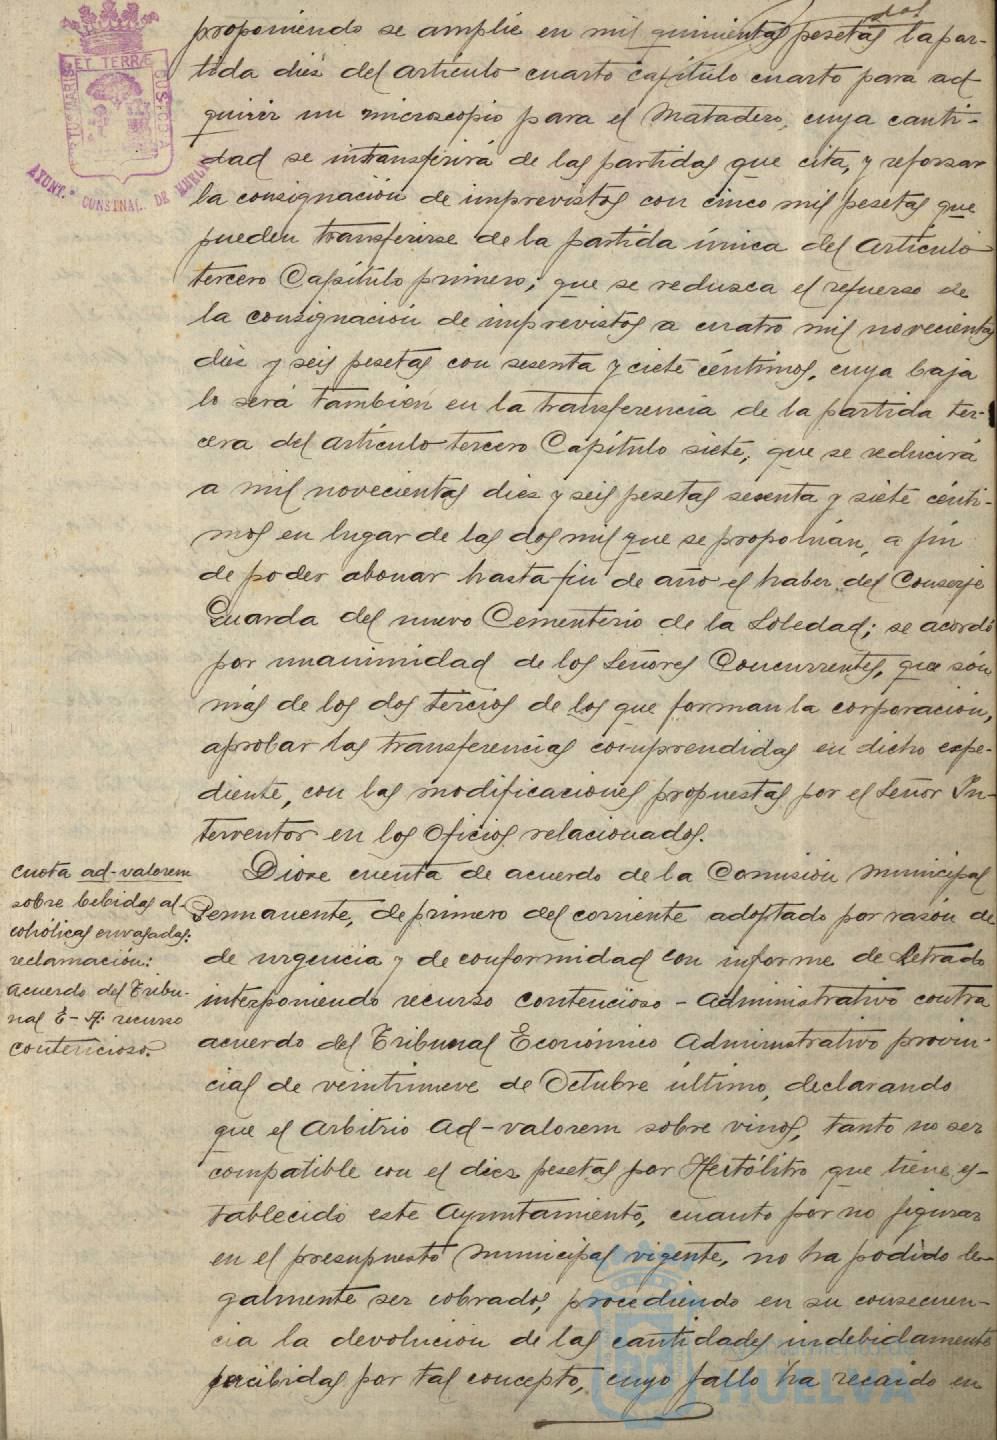 proponiendo se amplíe en mil quinientas pesetas la par-
tida diez del artículo cuarto capítulo cuarto para ad
quirir un microscopio para el Matadero, cuya canti-
dad se intransferirá de las partidas que cita, y reforzar
la consignación de imprevistos con cinco mil pesetas que
pueden transferirse de la partida única del Artículo
tercero Capítulo primero; que se reduzca el refuerzo de
la consignación de imprevistos a cuatro mil novecientas
diez y seis pesetas con sesenta y ciete céntimos, cuya baja
lo será tambien en la transferencia de la partida ter-
cera del artículo tercero Capítulo siete, que se reducirá
a mil novecientas diez y seis pesetas sesenta y siete cénti-
mos en lugar de las dos mil que se proponían, a fin
de poder abonar hasta fin de año el haber del Conserje
Guarda del nuevo Cementerio de la Soledad; se acordó
por unanimidad de los Señores Concurrentes, que són
más de los dos tercios de los que forman la corporación,
aprobar las transferencias comprendidas en dicho expe-
diente, con las modificaciones propuestas por el Señor In-
terventor en los Oficios relacionados.
cuota ad-valorem
sobre bebidas al-
cohólicas envasadas:
reclamación:
acuerdo del Tribu-
nal E-A: recurso
contencioso.
Diose cuenta de acuerdo de la Comisión Municipal
Permanente, de primero del corriente adoptado por razón de
de urgencia y de conformidad con informe de Letrado
interponiendo recurso contencioso-administrativo contra
acuerdo del Tribunal Económico Administrativo provin-
cial de veintinueve de Octubre último, declarando
que el Arbitrio Ad-valorem sobre vinos, tanto no ser
compatible con el diez pesetas por Hectólitro que tiene es-
tablecido este Ayuntamiento, cuanto por no figurar
en el presupuesto Municipal vigente, no ha podido le-
galmente ser cobrados, procediendo en su consecuen-
cia la devolución de las cantidades indebidamente
percibidas por tal concepto, cuyo fallo ha recaido en
AYUNT.º CONSTNAL. DE
ET TERRÆ
CUSTODIA
Ayuntamiento de
HUELVA